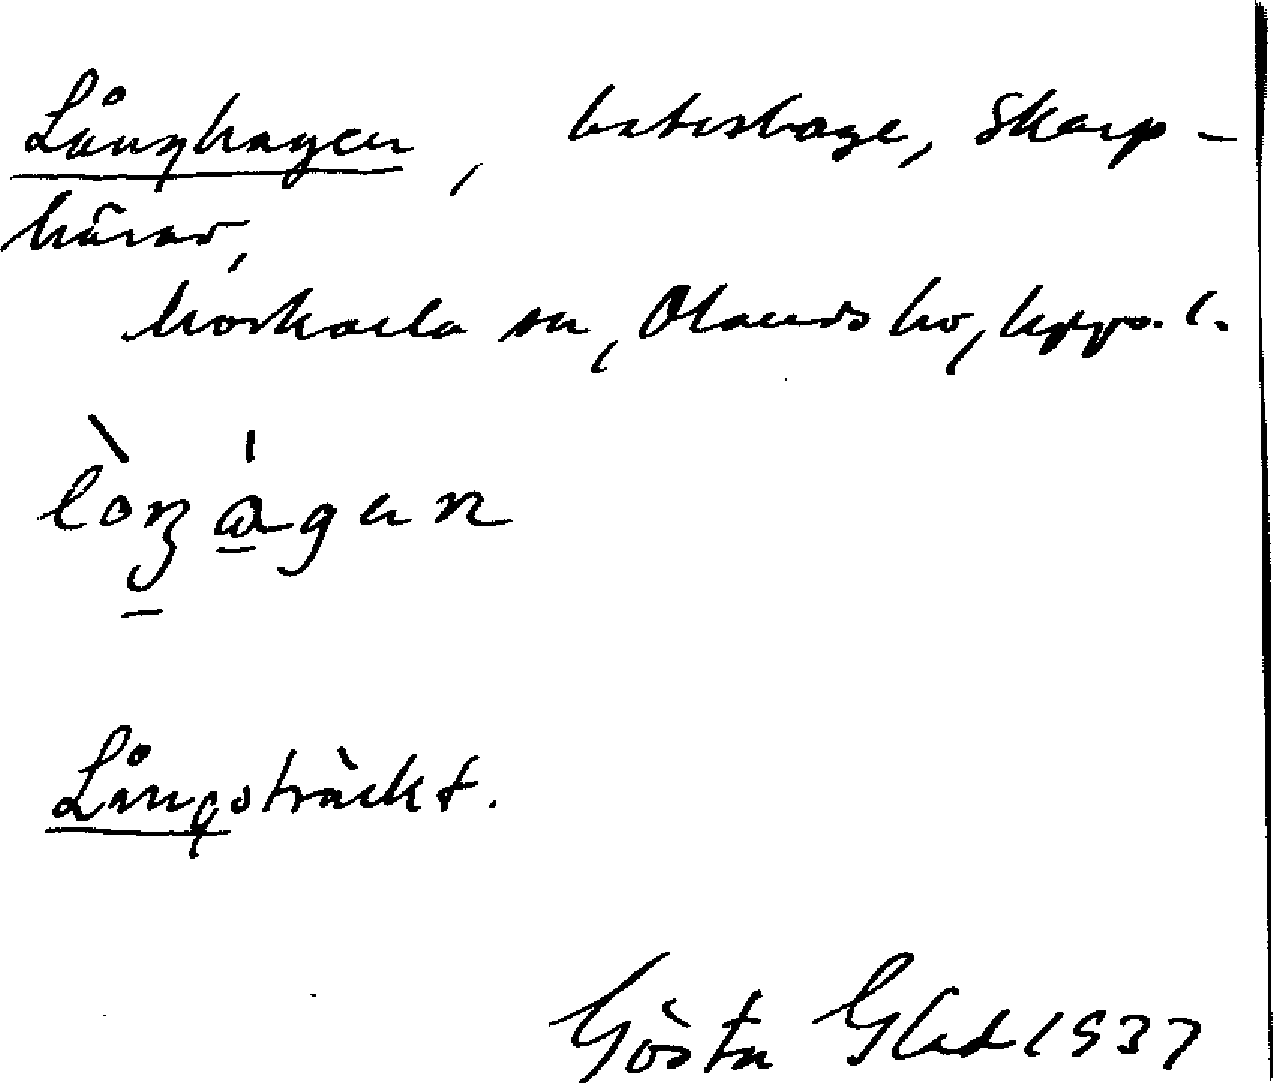 Långhagen, beteshage, Skarp-
hårav,
Morkarla sn, Olands hd, Upps. l.
Långsträckt.
Gösta Glad 1937